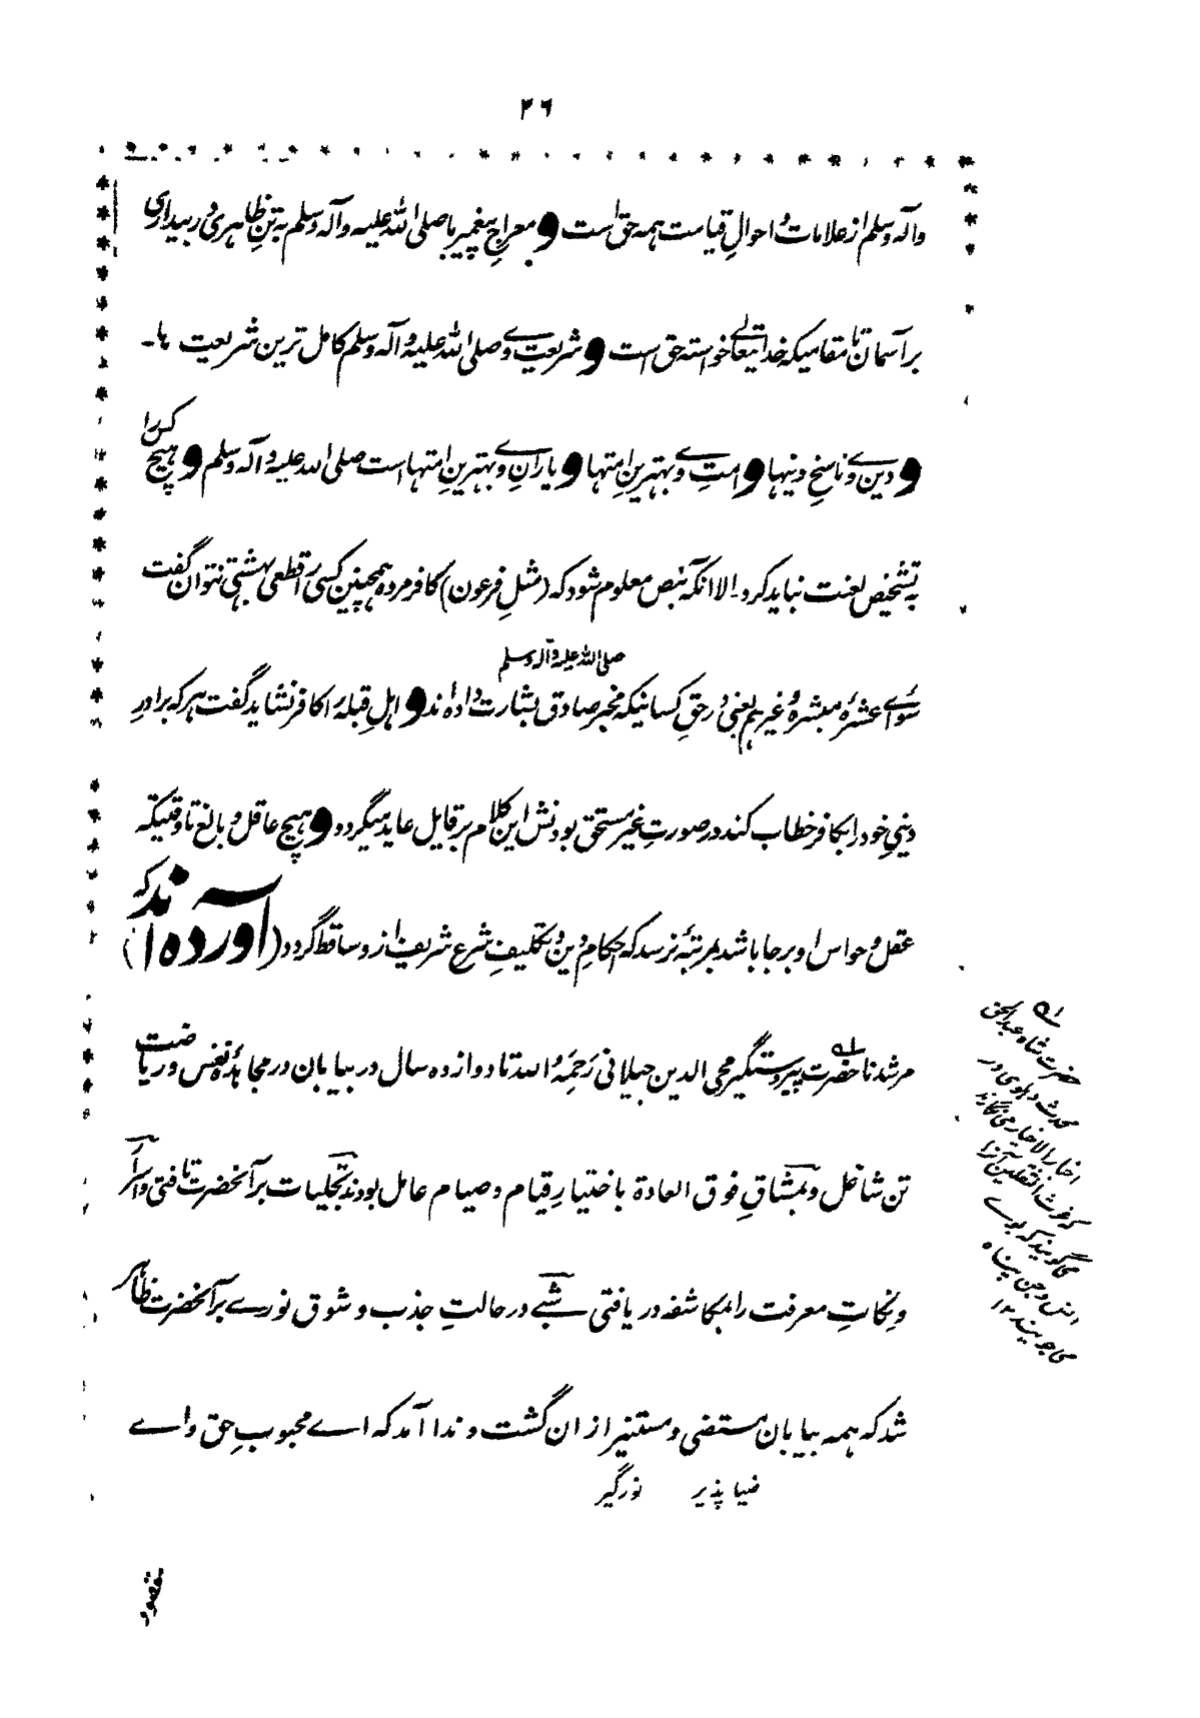 ۲۶
وآلہ وسلم از علامات و احوالِ قیامت ہمہ حق است و معراجِ پیغمبر ما صلی اللہ علیہ وآلہ وسلم بہ تنِ ظاہری در بیداری
بر آسمان تا مقامیکہ خدایتعالےٰ خواستہ حق است و شریعتِ وے صلی اللہ علیہ وآلہ وسلم کامل ترین شریعت ہا۔
و دینِ وے ناسخِ دینہا و امتِ وے بہترین امتہا و یارانِ وے بہترین امتہا است صلی اللہ علیہ وآلہ وسلم و ہیچ کس را
بہ تشخیص لعنت نباید کرد۔ الا آنکہ بنص معلوم شود کہ (مثلِ فرعون) کافر مردہ ہمچنین کسی را قطعی بہشتی نتوان گفت
صلی اللہ علیہ وآلہ وسلم
سوائے عشرۂ مبشرہ و غیرہم یعنی در حقِ کسانیکہ مخبرِ صادق بشارت دادہ اند و اہلِ قبلہ را کافر نشاید گفت ہر کہ برادرِ
دینیِ خود را بکافر خطاب کند در صورتِ غیر مستحق بودنش این کلام بر قایل عاید میگردد و ہیچ عاقل و بالغ تا وقتیکہ
عقل و حواس او بر جا باشد بمرتبۂ نرسد کہ احکامِ دین و تکلیفِ شرع شریف از و ساقط گردد (آوردہ اند کہ)
مرشدنا حضرت پیر دستگیر محی الدین جیلانی رَحِمَہُ اللہ تا دوازدہ سال در بیابان در مجاہدۂ نفس و ریاضت
تن شاغل و بمشاقِ فوق العادۃ باختیارِ قیام و صیام عامل بودند تجلیات بر آنحضرت تافتی و اسرار
و نکاتِ معرفت را بمکاشفہ دریافتی شبے در حالتِ جذب و شوق نورے بر آنحضرت ظاہر
شد کہ ہمہ بیابان مستضی و مستنیر از ان گشت و ندا آمد کہ اے محبوبِ حق و اے
ضیا پذیر نورگیر
حضرت شاہ عبدالحق
محدث دہلوی در
اخبار الاخیار می نگارند
کہ غوث الثقلین آنرا
می گویند کہ بوے
انس و جن پناہ
می جویند ۱۲